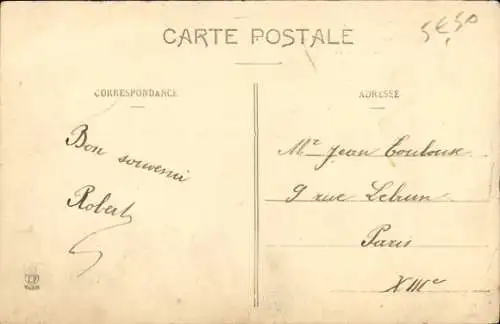 CARTE POSTALE
5€50
CORRESPONDANCE
ADRESSE
Bon souvenir
Robert
Mr Jean Toulouse
9 rue Lebrun
Paris
XIIIe